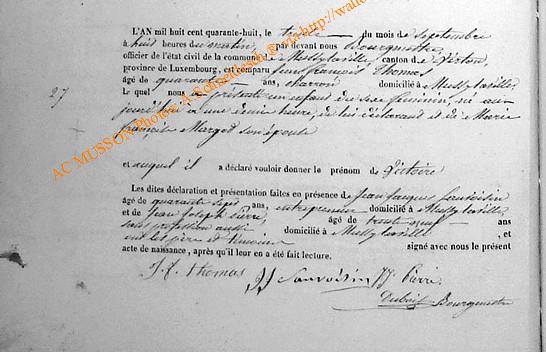 L'AN mil huit cent quarante-huit, le trente du mois de Septembre
à huit heures du matin, par devant nous Bourgmestre,
officier de l'état civil de la commune de Mussy laville, canton de Virton,
province de Luxembourg, est comparu Jean françois Thomas
âgé de quarante ans, charron domicilié à Mussy laville,
27
Le quel nous a présenté un enfant du sexe féminin, né au-
jourd'hui à une demie heure, de lui déclarant et de Marie
françoise Margot son épouse
et auquel il a déclaré vouloir donner le prénom de Victoire
Les dites déclaration et présentation faites en présence de Jean Jacques
âgé de quarante Sept ans, entrepreneur domicilié à Mussy laville,
et de Jean Joseph pierre, âgé de trente ans
sans profession aussi domicilié à Mussy laville, et
ont les père et témoins signé avec nous le présent
acte de naissance, après qu'il leur en a été fait lecture.
J. f. thomas JJ Sauvoisin JJ Pierre
Dubois Bourgmestre
AC MUSSON Photos A Schneidesch @ria-http://walle